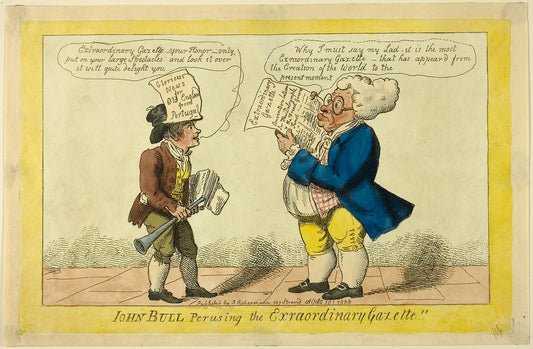 Extraordinary Gazette your Honor - only
put on your large Spectacles and look it over
it will quite delight you
Why I must say my Lad - it is the most
Extraordinary Gazette - that has appear'd from
the Creation of the World to the
present moment
Glorious
News
for
Old England
from
Portugal
Extraordinary
Gazette
Published by R Ackermann 101 Strand 1808
IOHN BULL Perusing the Extraordinary Gazette"